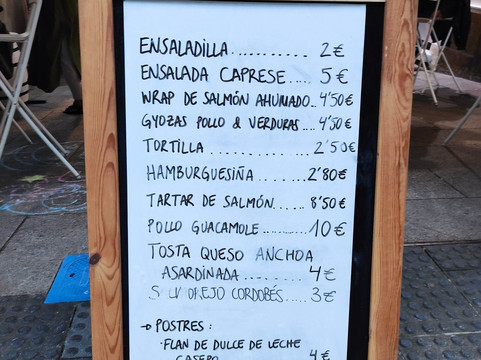 ENSALADILLA........... 2€
ENSALADA CAPRESE..... 5€
WRAP DE SALMÓN AHUMADO.. 4'50€
GYOZAS POLLO & VERDURAS.... 4'50€
TORTILLA ............. 2'50€
HAMBURGUESIÑA ....... 2'80€
TARTAR DE SALMÓN...... 8'50€
POLLO GUACAMOLE..... 10€
TOSTA QUESO ANCHOA
ASARDINADA ........ 4€
CORDOBÉS..... 3€
→ POSTRES :
· FLAN DE DULCE DE LECHE
CASERO ........ 4€